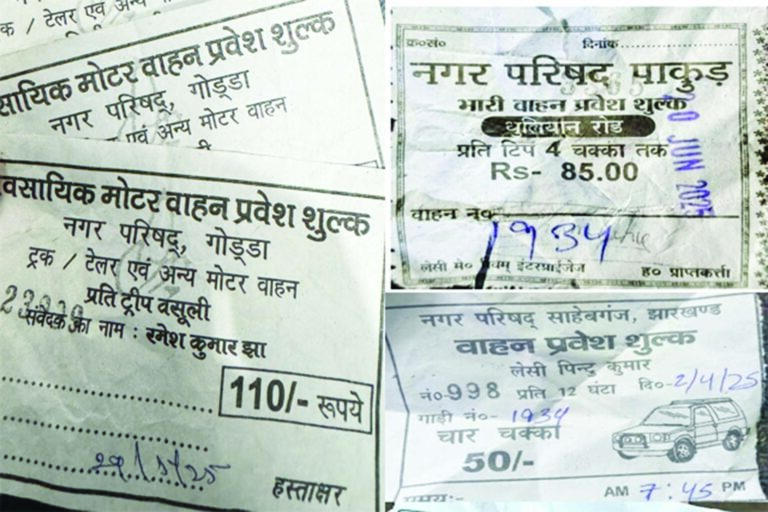 क / टेलर एवं अन्य मोटर
सायिक मोटर वाहन प्रवेश शुल्क
नगर परिषद्, गोड्डा
एवं अन्य मोटर वाहन
वसायिक मोटर वाहन प्रवेश शुल्क
नगर परिषद्, गोड्डा
ट्रक / टेलर एवं अन्य मोटर वाहन
प्रति ट्रीप वसूली
संवेदक का नाम : रमेश कुमार झा
110/- रूपये
हस्ताक्षर
क्र०सं० दिनांक
नगर परिषद पाकुड़
भारी वाहन प्रवेश शुल्क
धुलियान रोड
प्रति टिप 4 चक्का तक
Rs- 85.00
JUN
वाहन न०
1934
लेसी मे० इंटरप्राईजेज ह० प्राप्तकर्त्ता
नगर परिषद् साहेबगंज, झारखण्ड
वाहन प्रवेश शुल्क
लेसी पिन्टु कुमार
नं०-998 प्रति 12 घंटा दि०-2/4/25
गाड़ी नं०- 1934
चार चक्का
50/-
समय:- AM 7:45 PM